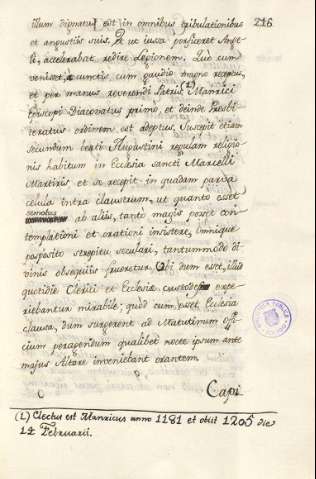 illum dignatus est in omnibus tribulationibus 216
et angustiis suis. Et ut iussa perficeret Ange-
li, accelerabat redire Legionem. Quo cum
venisset, a cunctis cum gaudio magno receptus,
et per manus reverendi Patris (1) Manrici
Episcopi Diaconatus primo, et deinde Presbi-
teratus ordinem est adeptus. Suscepit etiam
secundum beati Augustini regulam religio-
nis habitum in Ecclesia sancti Marcelli
Martiris et se recepit in quadam parva
celula intra claustrum, ut quanto esset
semotus
ab aliis, tanto magis posset con-
templationi et orationi insistere, omnique
posposito strepitu seculari, tantummodo di-
vinis obsequiis frueretur. Ubi dum esset, illud
quotidie Clerici et Ecclesiae custodes expe-
riebantur mirabile; quod cum esset Ecclesia
clausa, dum surgerent ad Matutinum offi-
cium peragendum qualibet nocte ipsum ante
majus Altare inveniebant orantem.
Capi
(1) Electus est Manricus anno 1181 et obiit 1205 die
14 Februarii.